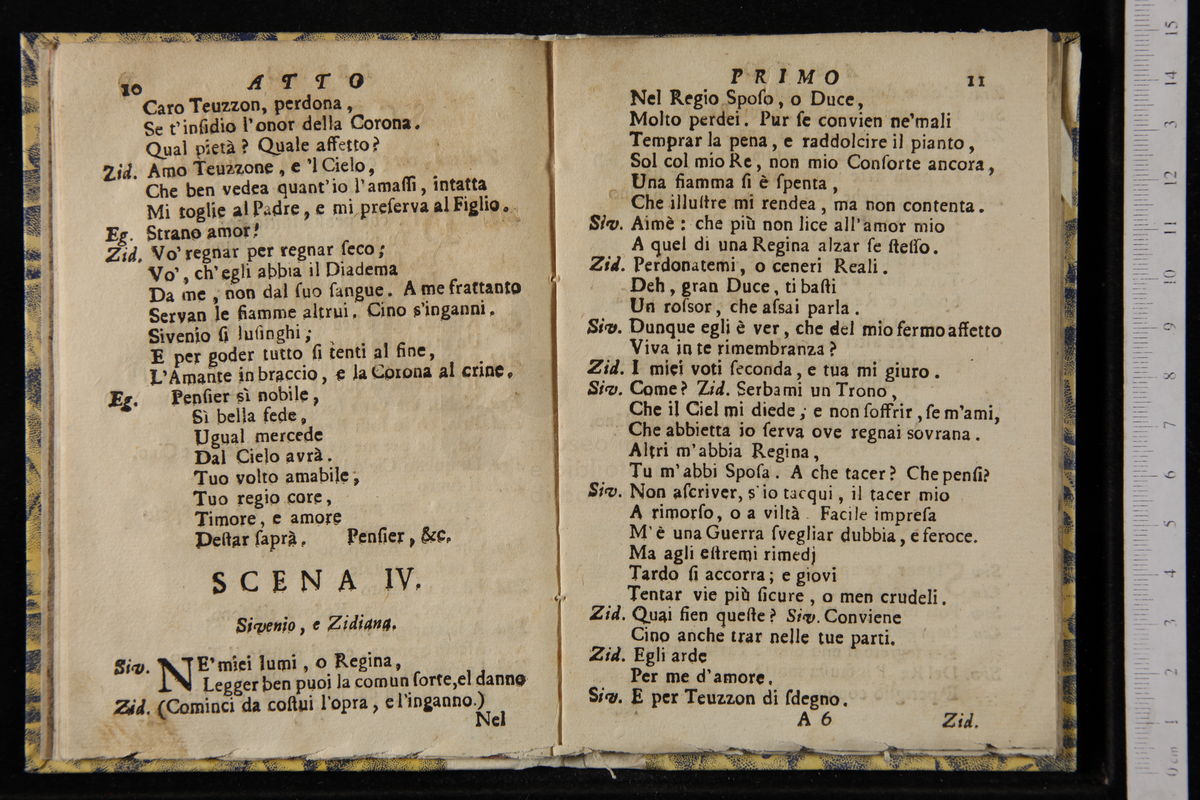 10 ATTO
Caro Teuzzon, perdona,
Se t'inſidio l'onor della Corona.
Qual pietà? Quale affetto?
Zid. Amo Teuzzone, e 'l Cielo,
Che ben vedea quant'io l'amaſſi, intatta
Mi toglie al Padre, e mi preſerva al Figlio.
Eg. Strano amor!
Zid. Vo' regnar per regnar ſeco;
Vo', ch'egli abbia il Diadema
Da me, non dal ſuo ſangue. A me frattanto
Servan le fiamme altrui. Cino s'inganni.
Sivenio ſi luſinghi;
E per goder tutto ſi tenti al fine,
L'Amante in braccio, e la Corona al crine.
Eg. Penſier sì nobile,
Sì bella fede,
Ugual mercede
Dal Cielo avrà.
Tuo volto amabile,
Tuo regio core,
Timore, e amore
Deſtar ſaprà. Penſier, &c.
SCENA IV.
Sivenio, e Zidiana.
Siv. NE' miei lumi, o Regina,
Legger ben puoi la comun ſorte, el danno
Zid. (Cominci da coſtui l'opra, e l'inganno.)
Nel
PRIMO 11
Nel Regio Spoſo, o Duce,
Molto perdei. Pur ſe convien ne'mali
Temprar la pena, e raddolcire il pianto,
Sol col mio Re, non mio Conſorte ancora,
Una fiamma ſi è ſpenta,
Che illuſtre mi rendea, ma non contenta.
Siv. Aimè: che più non lice all'amor mio
A quel di una Regina alzar ſe ſteſſo.
Zid. Perdonatemi, o ceneri Reali.
Deh, gran Duce, ti baſti
Un roſsor, che aſsai parla.
Siv. Dunque egli è ver, che del mio fermo affetto
Viva in te rimembranza?
Zid. I miei voti ſeconda, e tua mi giuro.
Siv. Come? Zid. Serbami un Trono,
Che il Ciel mi diede; e non ſoffrir, ſe m'ami,
Che abbietta io ſerva ove regnai sovrana.
Altri m'abbia Regina,
Tu m'abbi Spoſa. A che tacer? Che penſi?
Siv. Non aſcriver, s'io tacqui, il tacer mio
A rimorſo, o a viltà. Facile impreſa
M'è una Guerra ſvegliar dubbia, e feroce.
Ma agli eſtremi rimedj
Tardo ſi accorra; e giovi
Tentar vie più ſicure, o men crudeli.
Zid. Quai fien queſte? Siv. Conviene
Cino anche trar nelle tue parti.
Zid. Egli arde
Per me d'amore.
Siv. E per Teuzzon di ſdegno.
A 6 Zid.
15
14
13
12
11
10
9
8
7
6
5
4
3
2
1
0 cm